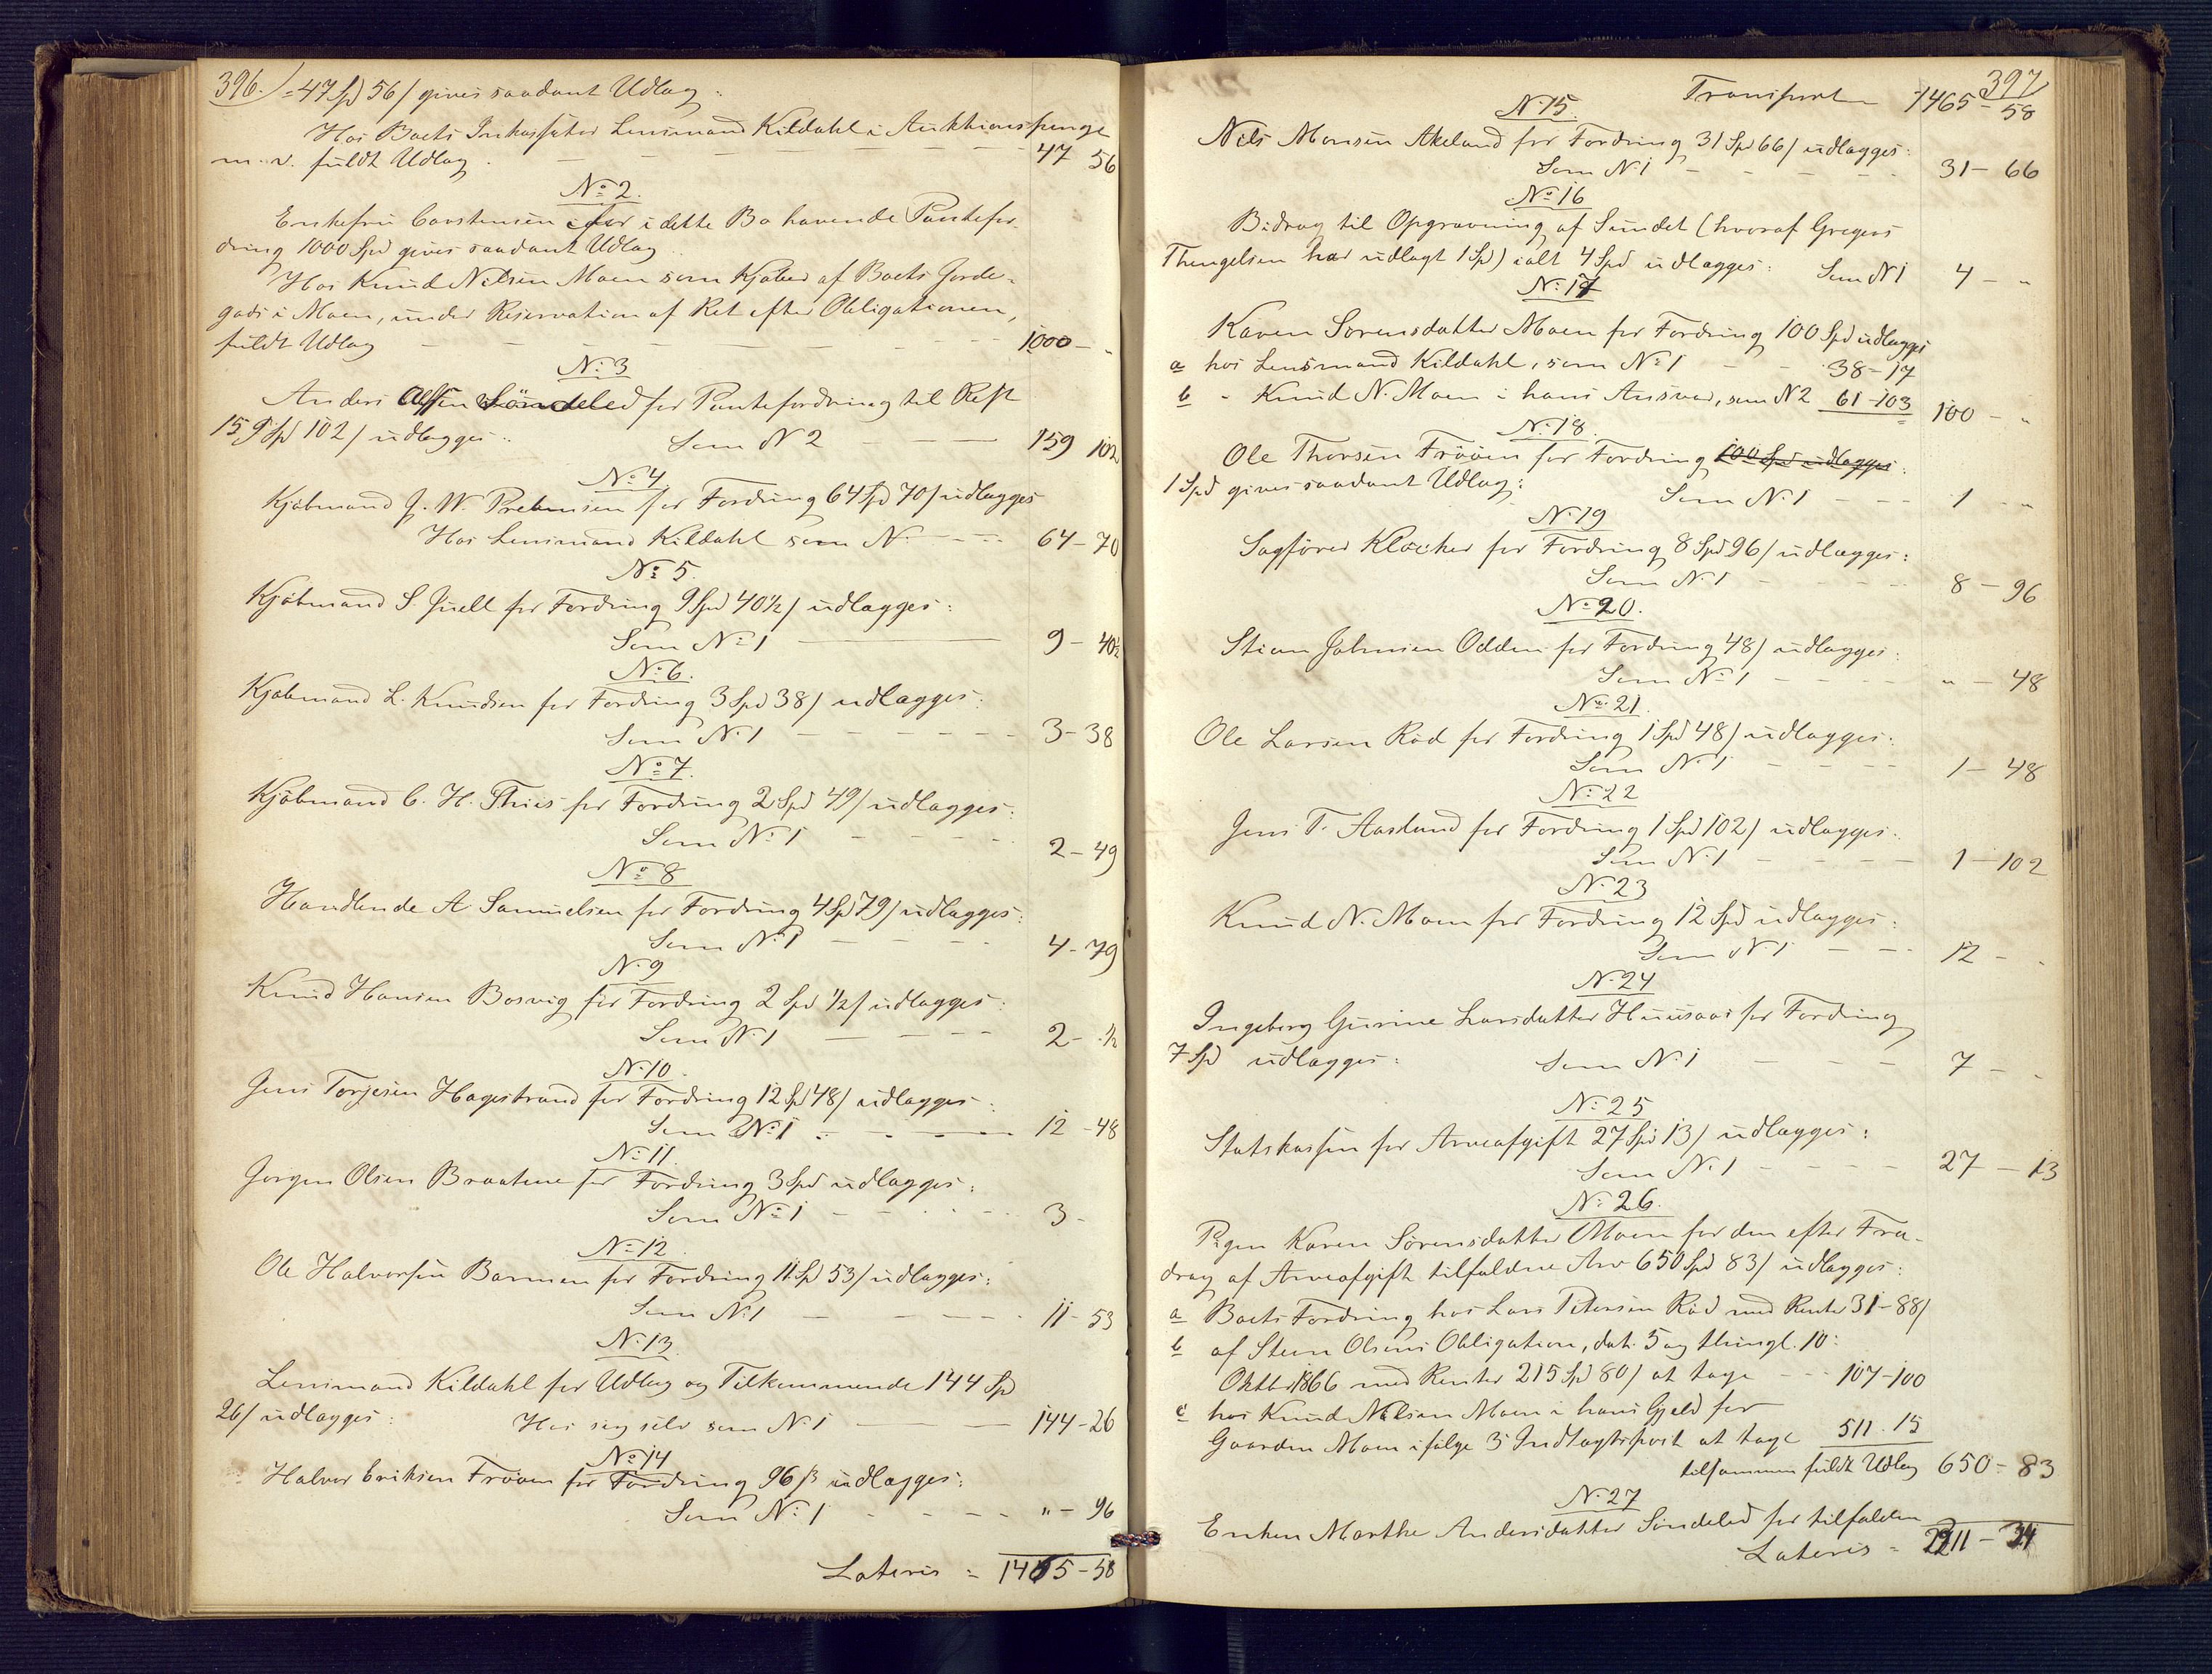 396. = 47 Spd 56 / gives saadant Udlæg :
Hos Boets Inkassator Lensmand Kildahl i Auktionspenge
m. v. fuldt Udlæg. — 47 56
No 2.
Enkefru Carstensen for i dette Bo havende Pantefor-
dring 1000 Spd gives saadant Udlæg
Hos Knud Nilsen Moen som Kjøber af Boets Jorde-
gods i Moen, under Reservation af Ret efter Obligationen,
fuldt Udlæg — 1000 - "
No 3
Anders Olsen Søndeled for Pantefordring til Rest
159 Spd 102 / udlægges : Som No 2 — 159 102
No 4
Kjøbmand J. W. Prebensen for Fordring 64 Spd 70 / udlægges
Hos Lensmand Kildahl som No — 64 - 70
No 5.
Kjøbmand S. Juell for Fordring 9 Spd 40½ / udlægges :
Som No 1 — 9 - 40½
No 6.
Kjøbmand L. Knudsen for Fordring 3 Spd 38 / udlægges :
Som No 1 — 3 - 38
No 7.
Kjøbmand C. H. Thiis for Fordring 2 Spd 49 / udlægges :
Som No 1 — 2 - 49
No 8
Handlende A Samuelsen for Fordring 4 Spd 79 / udlægges :
Som No 1 — 4 - 79
No 9
Knud Hansen Bosvig for Fordring 2 Spd ½ / udlægges :
Som No 1 — 2 - ½
No 10.
Jens Torjesen Hagestrand for Fordring 12 Spd 48 / udlægges :
Som No 1 — 12 - 48
No 11.
Jørgen Olsen Braatene for Fordring 3 Spd udlægges :
Som No 1 — 3 -
No 12.
Ole Halvorsen Barmen for Fordring 11 Spd 53 / udlægges :
Som No 1 — 11 - 53
No 13.
Lensmand Kildahl for Udlæg og Tilkommende 144 Spd
26 / udlægges : Hos sig selv som No 1 — 144 - 26
No 14
Halvor Eriksen Frøøen for Fordring 96 ß udlægges :
Som No 1 — " - 96
Lateris = 1465 - 58
397
Transport — 1465 - 58
No 15.
Nils Monsen Akeland for Fordring 31 Spd 66 / udlægges :
Som No 1 — 31 - 66
No 16
Bidrag til Opgravning af Sundet (hvoraf Gregers
Thengelsen har udlagt 1 Spd) ialt 4 Spd udlægges : Som No 1 4 - "
No 17
Karen Sørensdatter Moen for Fordring 100 Spd udlægges
a hos Lensmand Kildahl, som No 1 — 38 - 17
b " Knud N. Moen i hans Ansvar, som No 2 61 - 103 100 - "
No 18.
Ole Thorsen Frøøen for Fordring 100 Spd udlægges :
1 Spd gives saadant Udlæg : Som No 1 — 1 "
No 19
Sagfører Kløcker for Fordring 8 Spd 96 / udlægges :
Som No 1 — 8 - 96
No 20.
Stian Johnsen Odden for Fordring 48 / udlægges :
Som No 1 — " - 48
No 21.
Ole Larsen Rød for Fordring 1 Spd 48 / udlægges :
Som No 1 — 1 - 48
No 22
Jens T. Aaslund for Fordring 1 Spd 102 / udlægges :
Som No 1 — 1 - 102
No 23
Knud N. Moen for Fordring 12 Spd udlægges :
Som No 1 — 12 - "
No 24
Ingeborg Gurine Larsdatter Huusaas for Fordring
7 Spd udlægges : Som No 1 — 7 - "
No 25
Statskassen for Arveafgift 27 Spd 13 / udlægges :
Som No 1 — 27 - 13
No 26.
Pigen Karen Sørensdatter Moen for den efter Fra-
drag af Arveafgift tilfaldne Arv 650 Spd 83 / udlægges :
a Boets Fordring hos Lars Petersen Rød med Renter 31 - 88 /
b af Steen Olsens Obligation, dat. 5 og thingl. 10:
Oktbr 1866 med Renter 215 Spd 80 / at tage — 107 - 100
c hos Knud Nilsen Moen i hans Gjæld for
Gaarden Moen ifølge 3 Indtægtspost at tage 511 . 15
tilsammen fuldt Udlæg 650 - 83
No 27
Enken Marthe Andersdatter Søndeled for tilfalden
Lateris = 2311 - 34